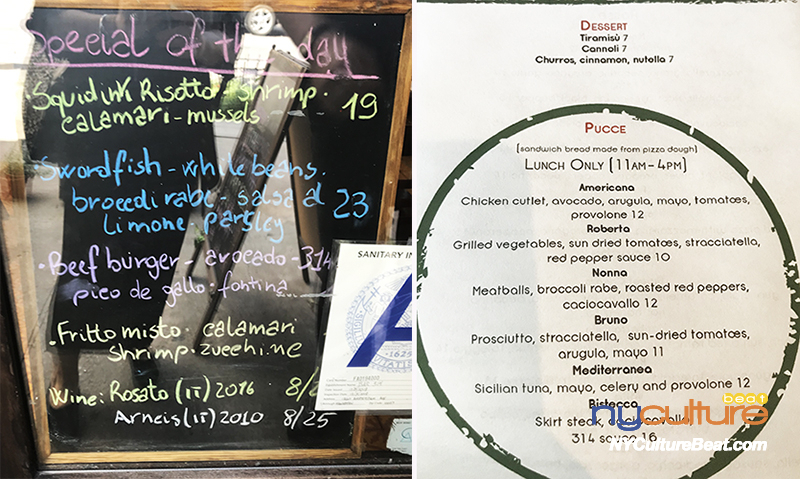 Special of the day
·Squid ink Risotto - shrimp·
calamari - mussels 19
·Swordfish - white beans·
broccoli rabe - salsa al
limone· parsley 23
·Beef burger - avocado - 314
pico de gallo· fontina
·Fritto misto· calamari
shrimp· zucchine
Wine: Rosato (IT) 2016 8/
Arneis (IT) 2010 8/25
SANITARY IN
A
1625
Dessert
Tiramisù 7
Cannoli 7
Churros, cinnamon, nutella 7
Pucce
(sandwich bread made from pizza dough)
Lunch Only (11am-4pm)
Americana
Chicken cutlet, avocado, arugula, mayo, tomatœs,
provolone 12
Roberta
Grilled vegetables, sun dried tomatœs, stracciatella,
red pepper sauce 10
Nonna
Meatballs, broccoli rabe, roasted red peppers,
caciocavallo 12
Bruno
Prosciutto, stracciatella, sun-dried tomatœs,
arugula, mayo 11
Mediterranea
Sicilian tuna, mayo, celery and provolone 12
Bistecca
Skirt steak, caciocavallo,
314 sauce 16
nyculture beat
NYCultureBeat.com